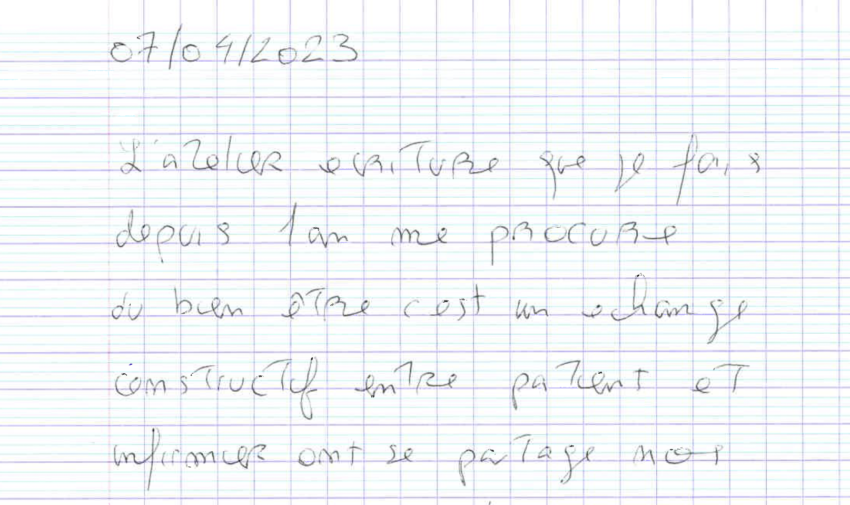 07/04/2023
L'atelier ecriture que je fais
depuis 1 an me procure
du bien être c est un echange
constructif entre patient et
infirmier ont se partage nos